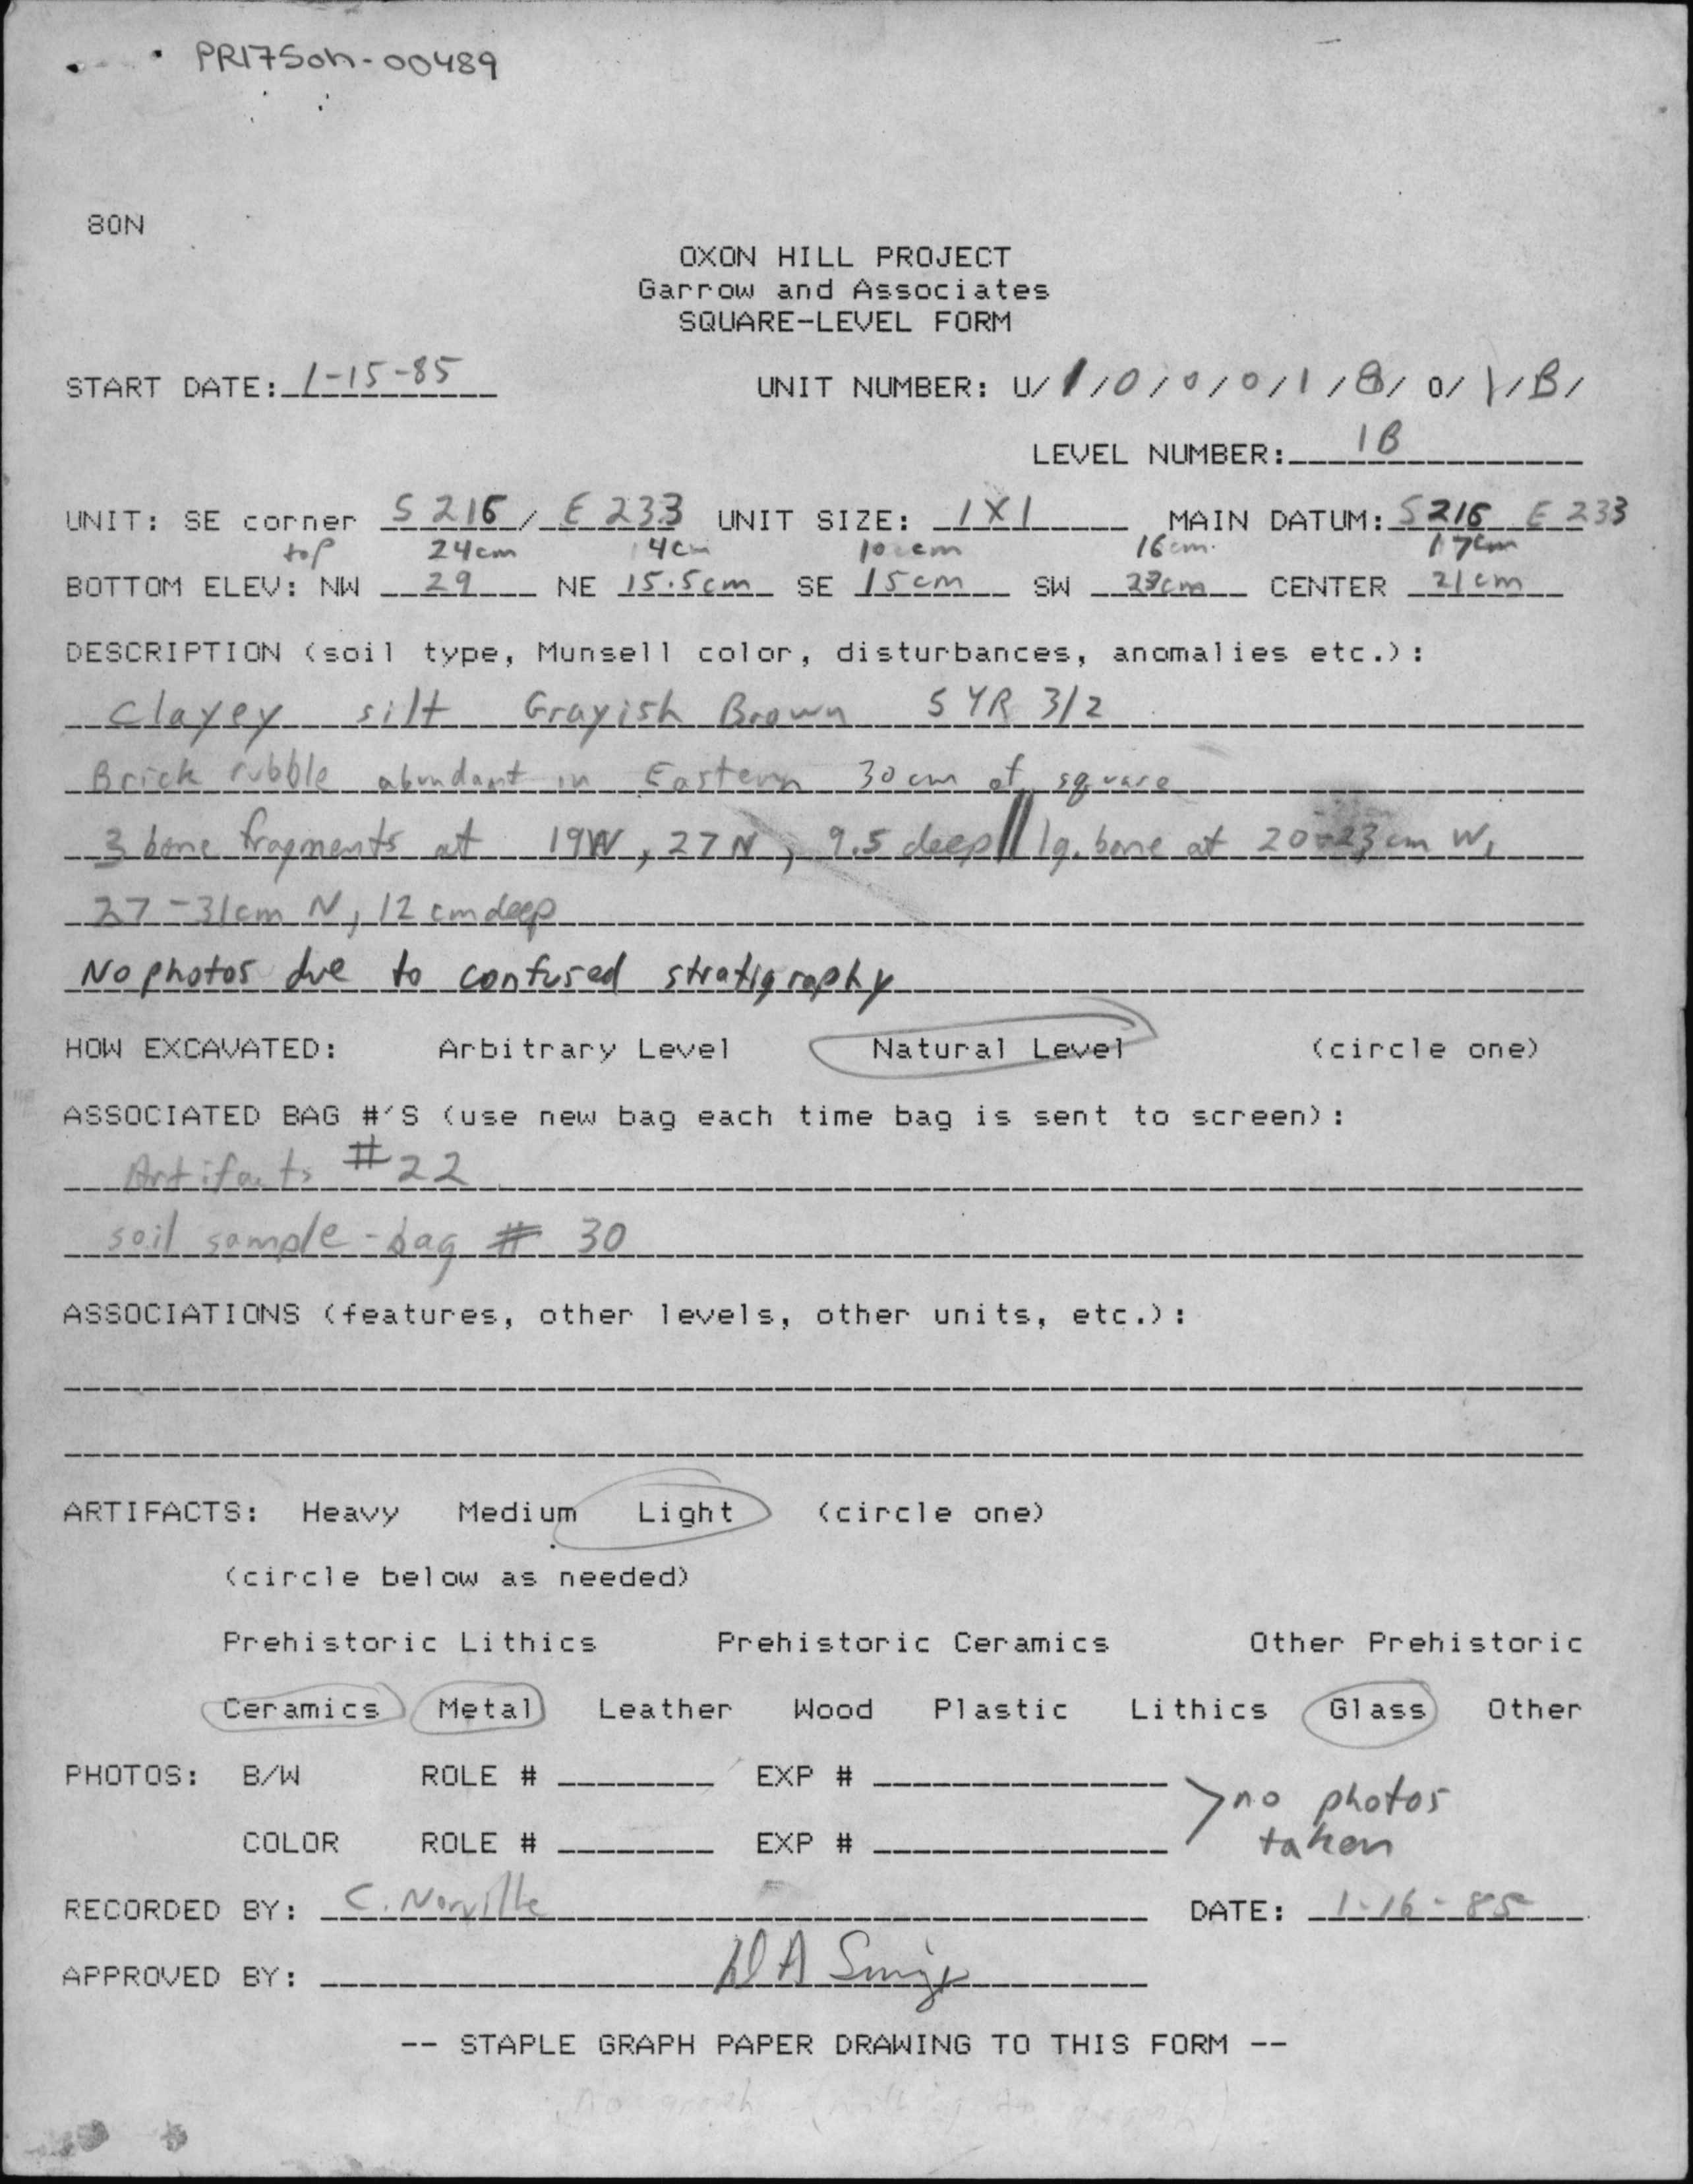 PR175oh-00489
80N
OXON HILL PROJECT
Garrow and Associates
SQUARE-LEVEL FORM
START DATE: 1-15-85 UNIT NUMBER: U/1/0/0/0/1/8/ 0/1/B/
LEVEL NUMBER: 1B
UNIT: SE corner S 216 / E 233 UNIT SIZE: 1X1 MAIN DATUM: S216 E 233
top 24cm 14cm 10 cm 16cm. 17cm
BOTTOM ELEV: NW 29 NE 15.5cm SE 15cm SW cm CENTER 21cm
DESCRIPTION (soil type, Munsell color, disturbances, anomalies etc.):
Clayey silt Grayish Brown 5 YR 3/2
Brick rubble abundant in Eastern 30cm of square
3 bone fragments at 19W, 27N, 9.5 deep || lg. bone at 20-23cm W,
27-31cm N, 12 cm deep
No photos due to confused stratigraphy
HOW EXCAVATED: Arbitrary Level Natural Level (circle one)
ASSOCIATED BAG #'S (use new bag each time bag is sent to screen):
Artifacts #22
soil sample - bag # 30
ASSOCIATIONS (features, other levels, other units, etc.):
ARTIFACTS: Heavy Medium Light (circle one)
(circle below as needed)
Prehistoric Lithics Prehistoric Ceramics Other Prehistoric
Ceramics Metal Leather Wood Plastic Lithics Glass Other
PHOTOS: B/W ROLE # EXP #
no photos
COLOR ROLE # EXP #
taken
RECORDED BY: C. Norville DATE: 1-16-85
APPROVED BY:
-- STAPLE GRAPH PAPER DRAWING TO THIS FORM --